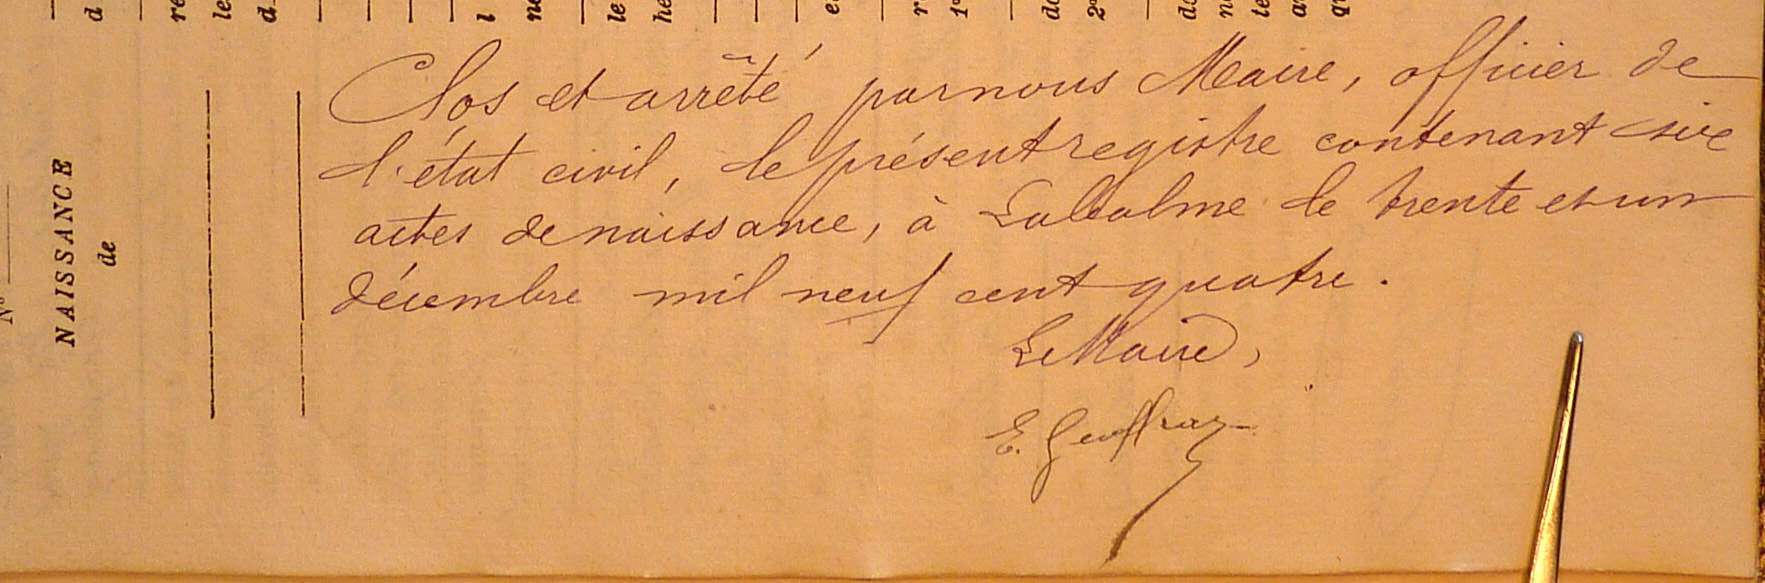 Clos et arrêté par nous Maire, officier de
l'état civil, le présent registre contenant six
actes de naissance, à Labalme le trente et un
décembre mil neuf cent quatre.
Le Maire,
E. Geoffray
NAISSANCE
de
N°